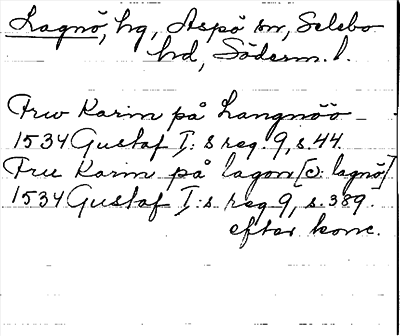 Lagnö, hg, Aspö sn, Selebo
hd, Söderm. l.
Frw Karin på Langnöö –
1534 Gustaf I:s reg. 9, s. 44.
Fru Karin på lagon [ɔ: lagnö]
1534 Gustaf I:s reg 9, s. 389.
efter konc.